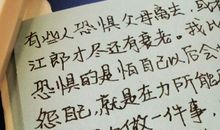 有些人恐惧父母离去,或
江郎才尽还有衰老。我以
恐惧的是怕自己以后会
怨自己,就是在力所能
做一件事